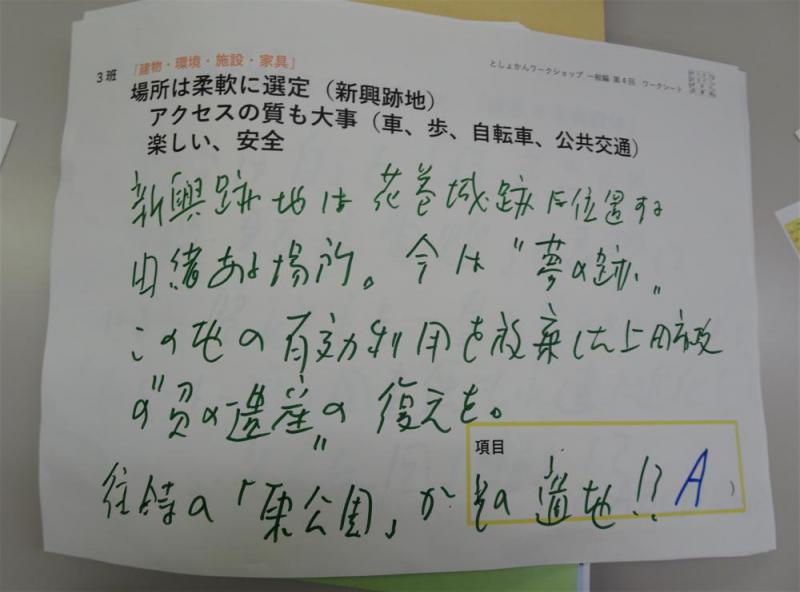 としょかんワークショップ 一般編 第4回 ワークシート
3班 「建物・環境・施設・家具」
場所は柔軟に選定（新興跡地）
アクセスの質も大事（車、歩、自転車、公共交通）
楽しい、安全
新興跡地は花巻城跡に位置する
由緒ある場所。今は〝夢の跡〟
この地の有効利用を放棄した上田市政
の〝負の遺産〟の復元を。
項目
往時の「東公園」がその適地!? A
)